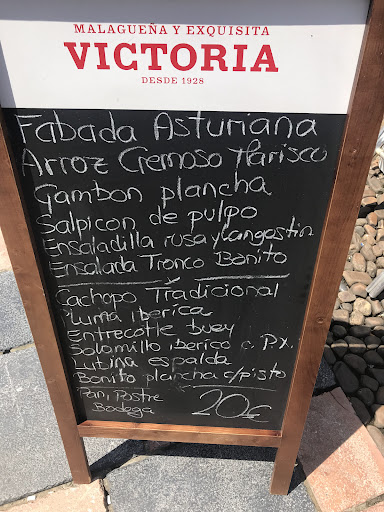 MALAGUEÑA Y EXQUISITA
VICTORIA
DESDE 1928
Fabada Asturiana
Arroz Cremoso Marisco
Gambon plancha
Salpicon de pulpo
Ensaladilla rusa y langostin
Ensalada Tronco Bonito
Cachopo Tradicional
Pluma iberica
Entrecotle buey
Solomillo iberico c. Px.
Lubina espalda
Bonito plancha c/pisto
Pan, Postre
Bodega 20€